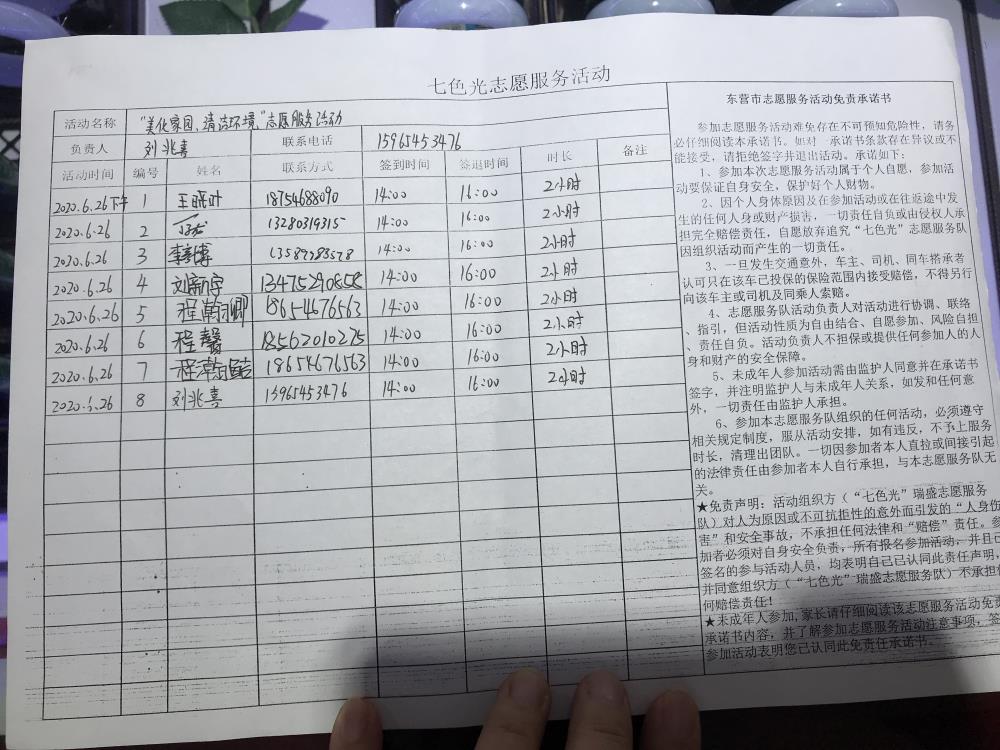 七色光志愿服务活动
活动名称 "美化家园、清洁环境"志愿服务活动
负责人 刘兆喜 联系电话 15965453476
活动时间 编号 姓名 联系方式 签到时间 签退时间 时长 备注
2020.6.26下午 1 王晓叶 18754688090 14:00 16:00 2小时
2020.6.26 2 13280319315 14:00 16:00 2小时
2020.6.26 3 14:00 16:00 2小时
2020.6.26 4 刘新宇 13475290858 14:00 16:00 2小时
2020.6.26 5 程瀚卿 18654676563 14:00 16:00 2小时
2020.6.26 6 程馨 18562010275 14:00 16:00 2小时
2020.6.26 7 程瀚喆 18654676563 14:00 16:00 2小时
2020.6.26 8 刘兆喜 15965453476 14:00 16:00 2小时
东营市志愿服务活动免责承诺书
参加志愿服务活动难免存在不可预知危险性，请务
必仔细阅读本承诺书。如对 承诺书条款存在异议或不
能接受，请拒绝签字并退出活动。承诺如下：
1、参加本次志愿服务活动属于个人自愿，参加活
动要保证自身安全，保护好个人财物。
2、因个人身体原因及在参加活动或在往返途中发
生的任何人身或财产损害，一切责任自负或由侵权人承
担完全赔偿责任，自愿放弃追究“七色光”志愿服务队
因组织活动而产生的一切责任。
3、一旦发生交通意外，车主、司机、同车搭承者
认可只在该车已投保的保险范围内接受赔偿，不得另行
向该车主或司机及同乘人索赔。
4、志愿服务队活动负责人对活动进行协调、联络
、指引，但活动性质为自由结合、自愿参加、风险自担
、责任自负。活动负责人不担保或提供任何参加人的人
身和财产的安全保障。
5、未成年人参加活动需由监护人同意并在承诺书
签字，并注明监护人与未成年人关系，如发和任何意
外，一切责任由监护人承担。
6、参加本志愿服务队组织的任何活动，必须遵守
相关规定制度，服从活动安排，如有违反，不予上服务
时长，清理出团队。一切因参加者本人直拉或间接引起
的法律责任由参加者本人自行承担，与本志愿服务队无
关。
★免责声明：活动组织方（“七色光”瑞盛志愿服务
队）对人为原因或不可抗拒性的意外而引发的“人身伤
害”和安全事故，不承担任何法律和“赔偿”责任。参
加者必须对自身安全负责，所有报名参加活动，并且已
签名的参与活动人员，均表明自己已认同此责任声明，
并同意组织方（“七色光”瑞盛志愿服务队）不承担任
何赔偿责任！
★未成年人参加，家长请仔细阅读该志愿服务活动免责
承诺书内容，并了解参加志愿服务活动注意事项，签
参加活动表明您已认同此免责任承诺书。